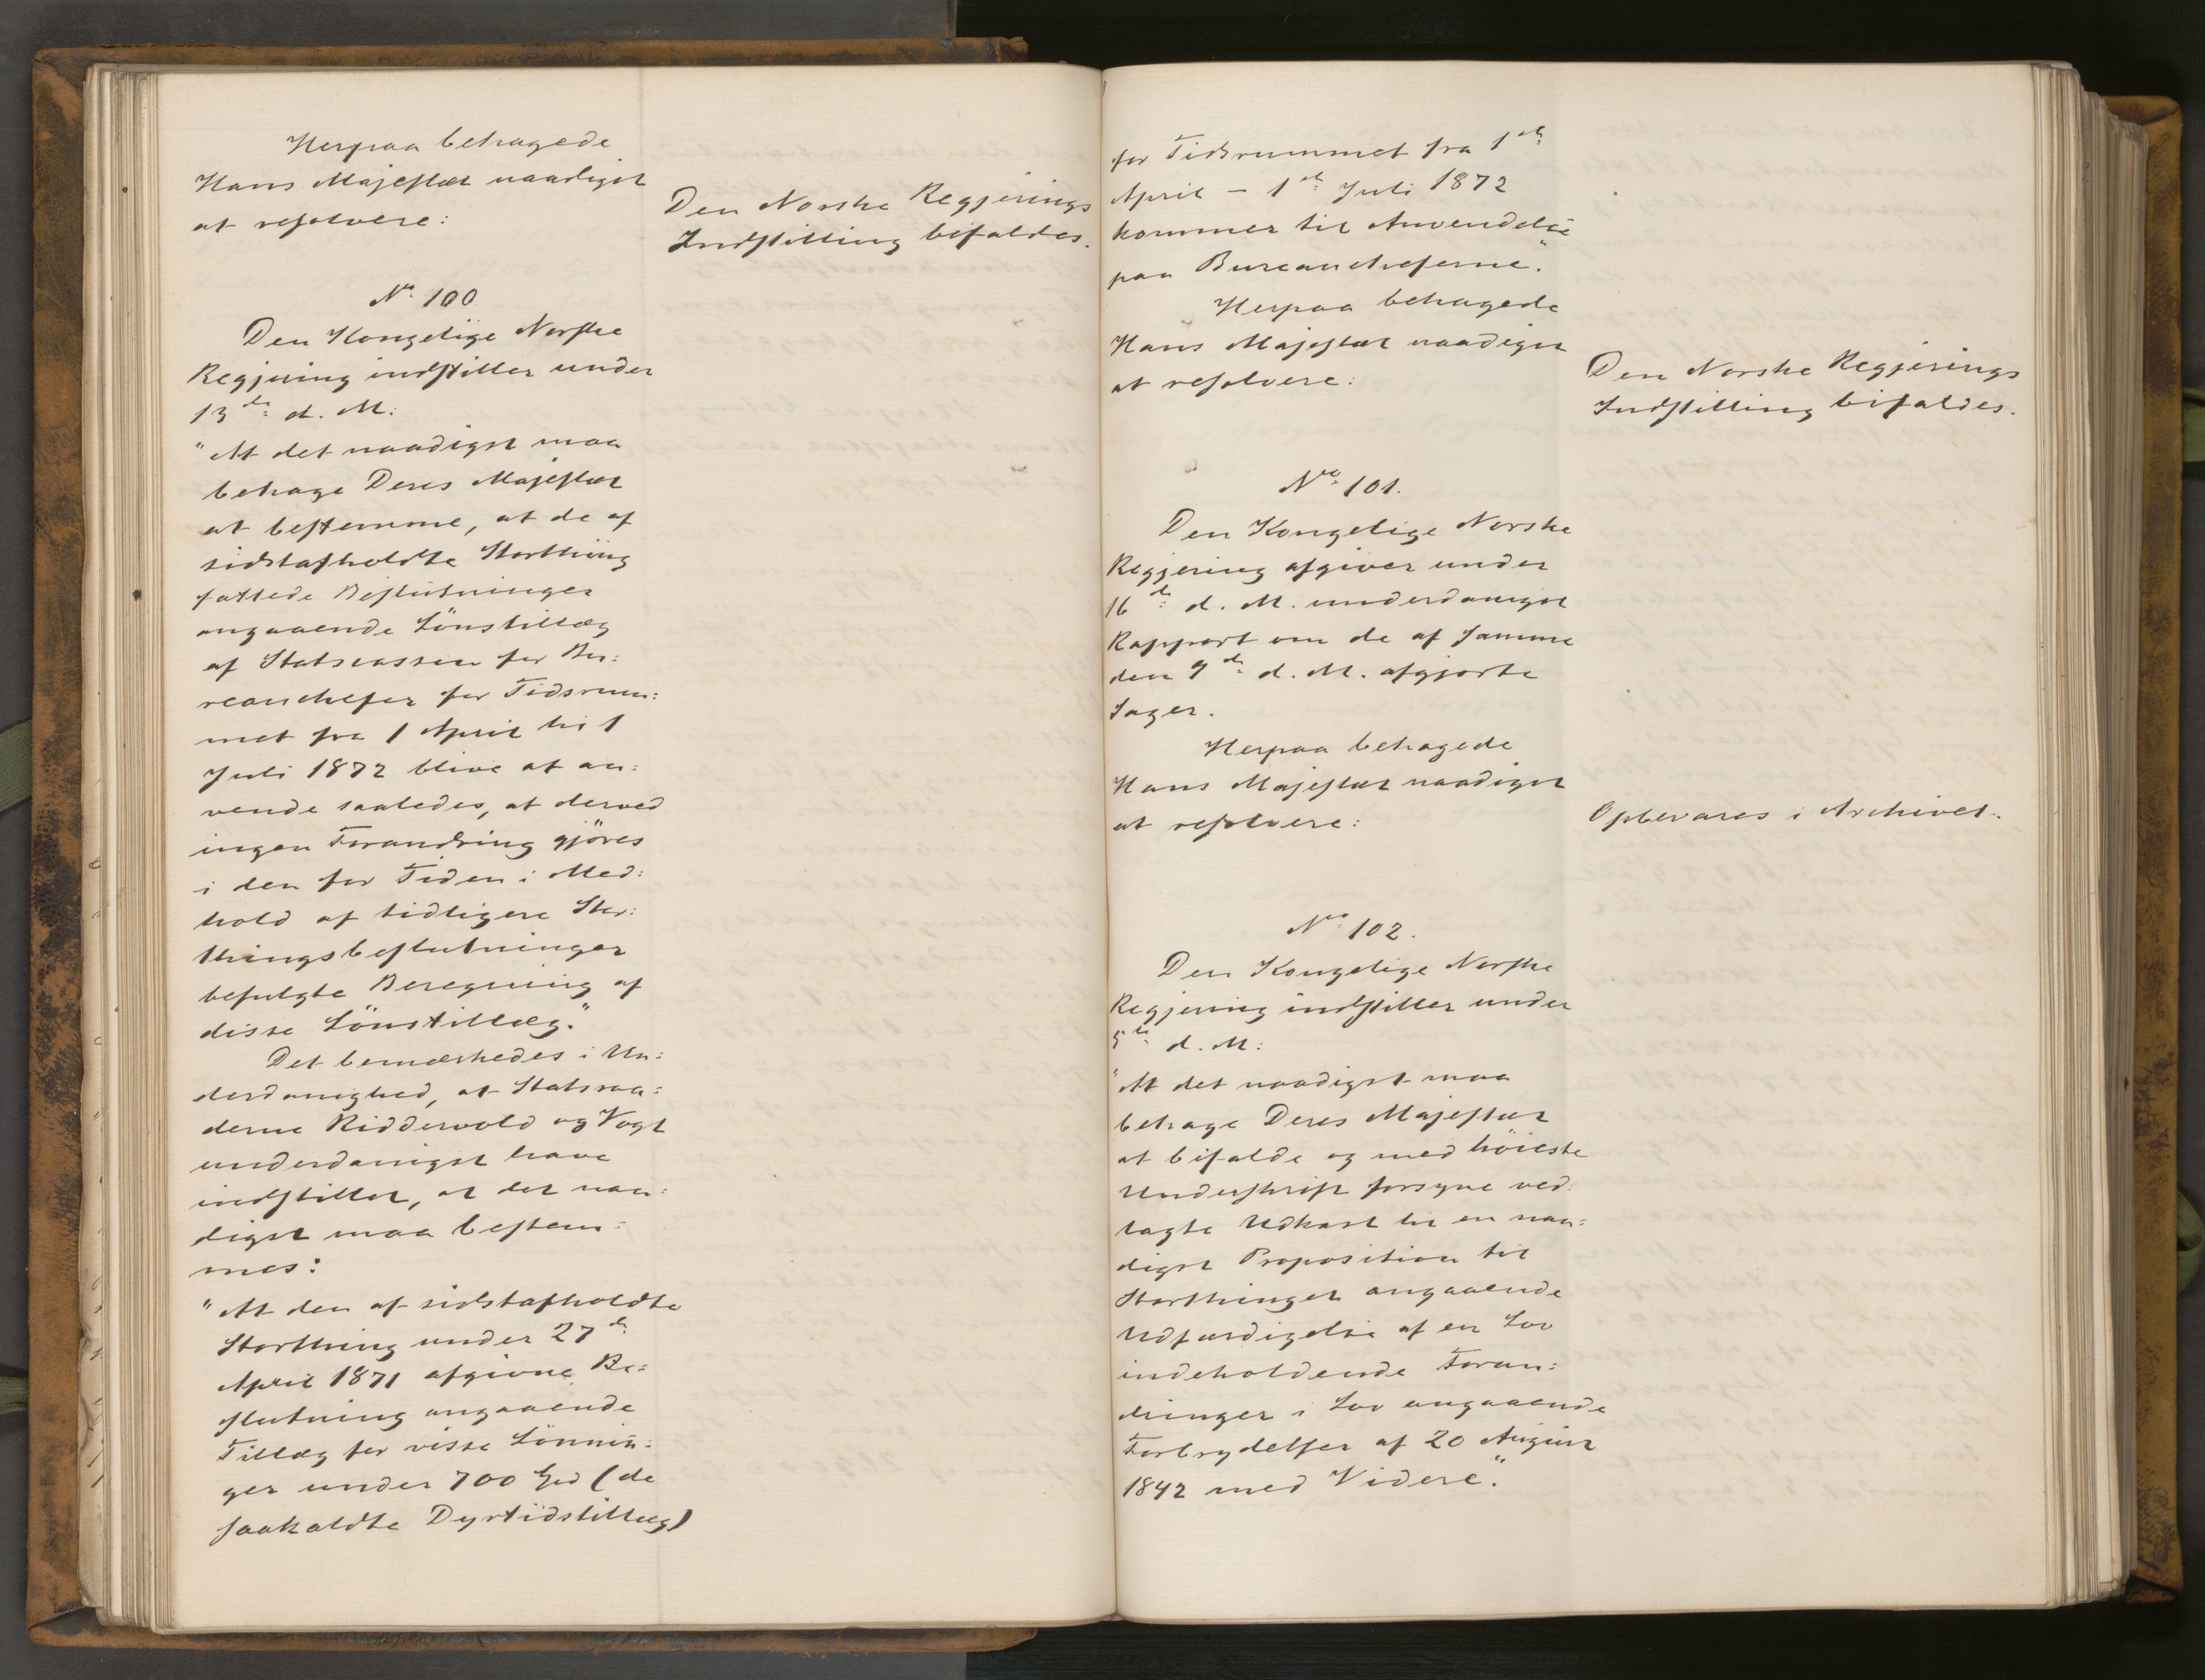 Herpaa behagede
Hans Majestæt naadigst
at resolvere:
Den Norske Regjerings
Indstilling bifaldes.
No. 100
Den Kongelige Norske
Regjering indstiller under
13de d. M:
"At det naadigst maa
behage Deres Majestæt
at bestemme, at de af
sidstafholdte Storthing
fattede Beslutninger
angaaende Lönstillæg
af Statscassen for Bu:
reauchefer for Tidsrum:
met fra 1 April til 1
Juli 1872 blive at an:
vende saaledes, at derved
ingen Forandring gjöres
i den for Tiden i Med:
hold af tidligere Stor:
thingsbeslutninger
befulgte Beregning af
disse Lönstillæg."
Det bemærkedes i Un:
derdanighed, at Statsraa:
derne Riddervold og Vogt
underdanigst have
indstillet, at det naa:
digst maa bestem:
mes:
"At den af sidstafholdte
Storthing under 27de
April 1871 afgivne Be:
slutning angaaende
Tillæg for visse Lönnin:
ger under 700 Spd (de
saakaldte Dyrtidstillæg)
for Tidsrummet fra 1ste
April - 1ste Juli 1872
kommer til Anvendelse
paa Bureaucheferne."
Herpaa behagede
Hans Majestæt naadigst
at resolvere:
Den Norske Regjerings
Indstilling bifaldes.
No. 101.
Den Kongelige Norske
Regjering afgiver under
16de d. M. underdanigst
Rapport om de af samme
den 9de d. M. afgjorte
Sager.
Herpaa behagede
Hans Majestæt naadigst
at resolvere:
Opbevares i Archivet.
No. 102.
Den Kongelige Norske
Regjering indstiller under
5te d. M:
"At det naadigst maa
behage Deres Majestæt
at bifalde og med höieste
Underskrift forsyne ved:
lagte Udkast til en naa:
digst Proposition til
Storthinget angaaende
Udfærdigelse af en Lov
indeholdende Foran:
dringer i Lov angaaende
Forbrydelser af 20 August
1842 med Videre."